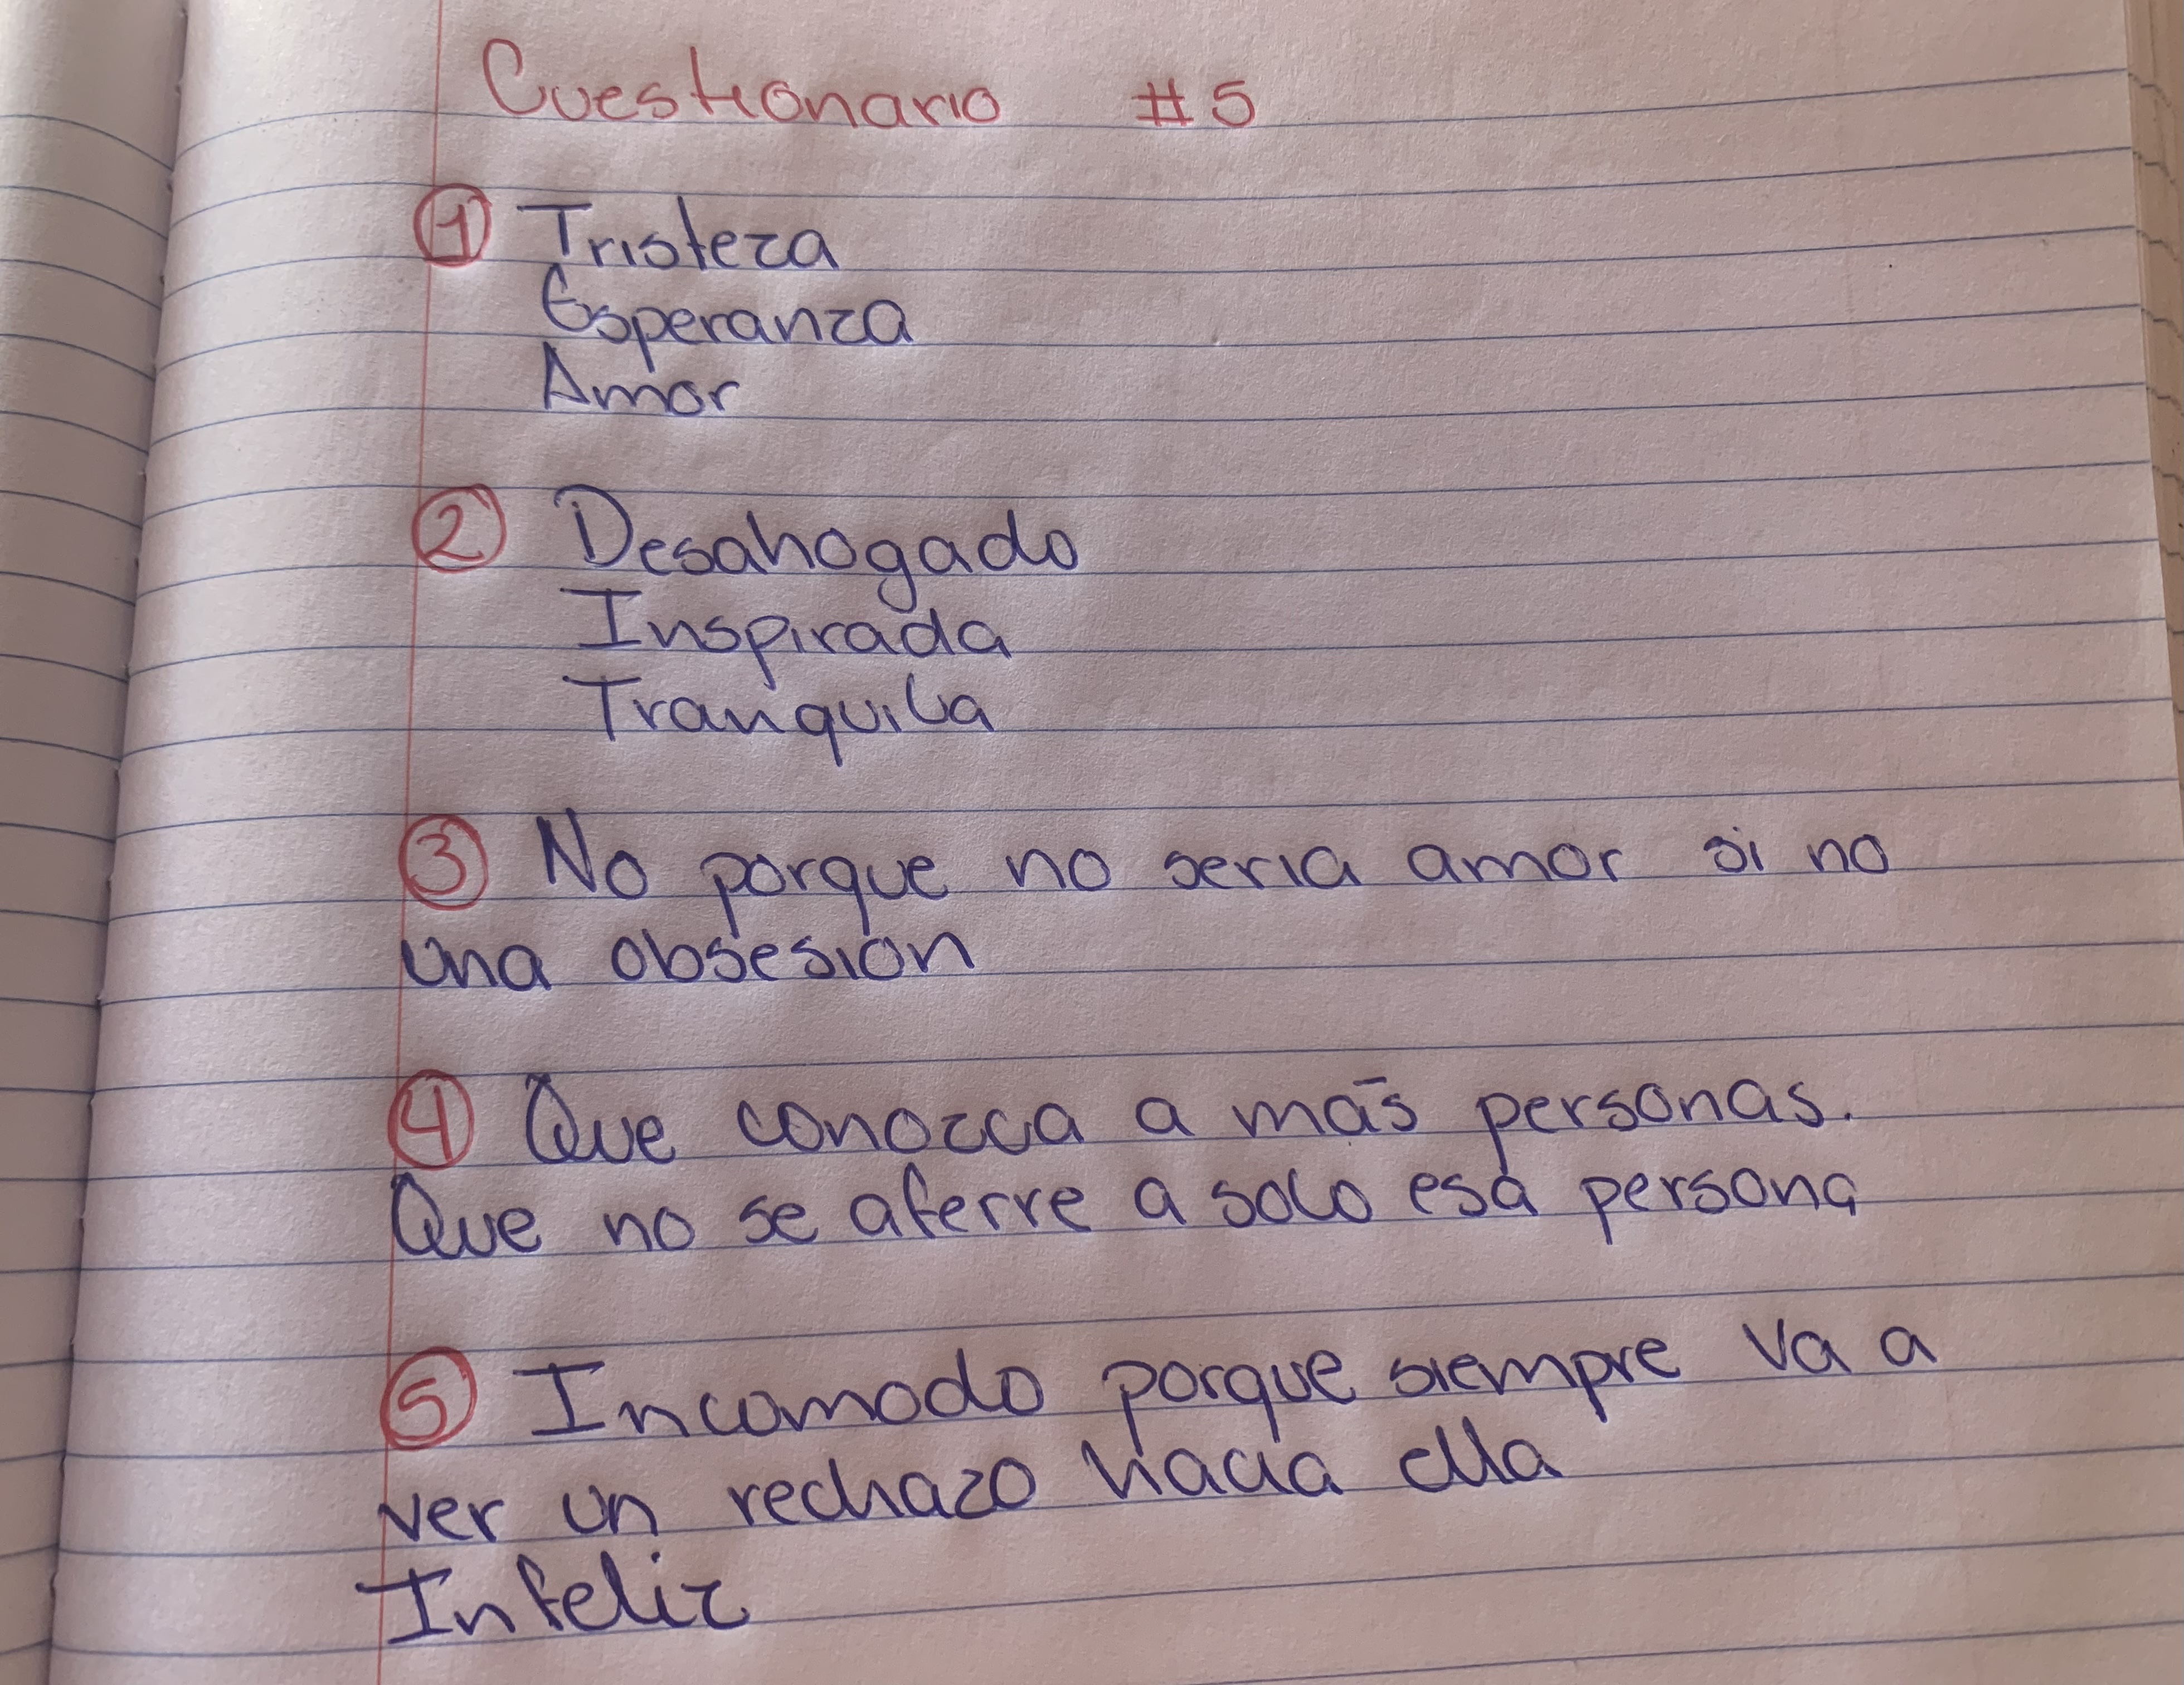 Cuestionario #5
1 Tristeza
Esperanza
Amor
2 Desahogado
Inspirada
Tranquila
3 No porque no seria amor si no
una obsesión
4 Que conozca a más personas.
Que no se aferre a solo esa persona
5 Incomodo porque siempre va a
ver un rechazo hacia ella
Infeliz